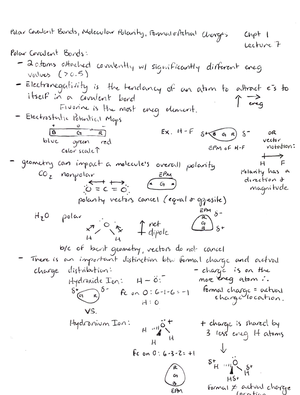 Polar Covalent Bonds, Molecular Polarity, Formal/Actual Charges Chpt 1
Lecture 7
Polar Covalent Bonds:
- 2 atoms attached covalently w/ significantly different eneg
values (>0.5)
- Electronegativity is the tendency of an atom to attract e's to
itself in a covalent bond ↑ → eneg
Fluorine is the most eneg element.
- Electrostatic Potential Maps
B G R Ex. H-F δ+ B G R δ- or
blue green red EPM of H-F vector
color scale ↑ notation:
H F
- geometry can impact a molecule's overall polarity Polarity has a
CO₂ nonpolar EPM direction &
O=C=O R G R magnitude
polarity vectors cancel (equal & opposite)
H₂O polar EPM
O ↑ net R δ-
H H dipole G
B δ+
b/c of bent geometry, vectors do not cancel
- There is an important distinction btw formal charge and actual
charge distribution: - charge is on the
Hydroxide Ion: H-O:⁻ more eneg atom ∴
δ+ G R δ- Fc on O: 6-1-6=-1 formal charge = actual
H: 0 charge location.
VS.
Hydronium Ion: O + + charge is shared by
H H H 3 less eneg H atoms
Fc on O: 6-3-2=+1
R G B δ+ H O H δ+
EPM H δ+
Formal ≠ actual charge
location